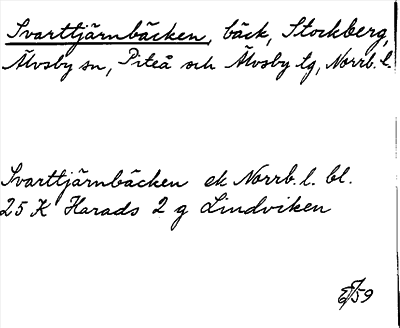 Svarttjärnbäcken, bäck, Stockberg,
Älvsby sn, Piteå och Älvsby tg, Norrb. l.
Svarttjärnbäcken ek Norrb. l. bl.
25 K Harads 2 g Lindviken
59